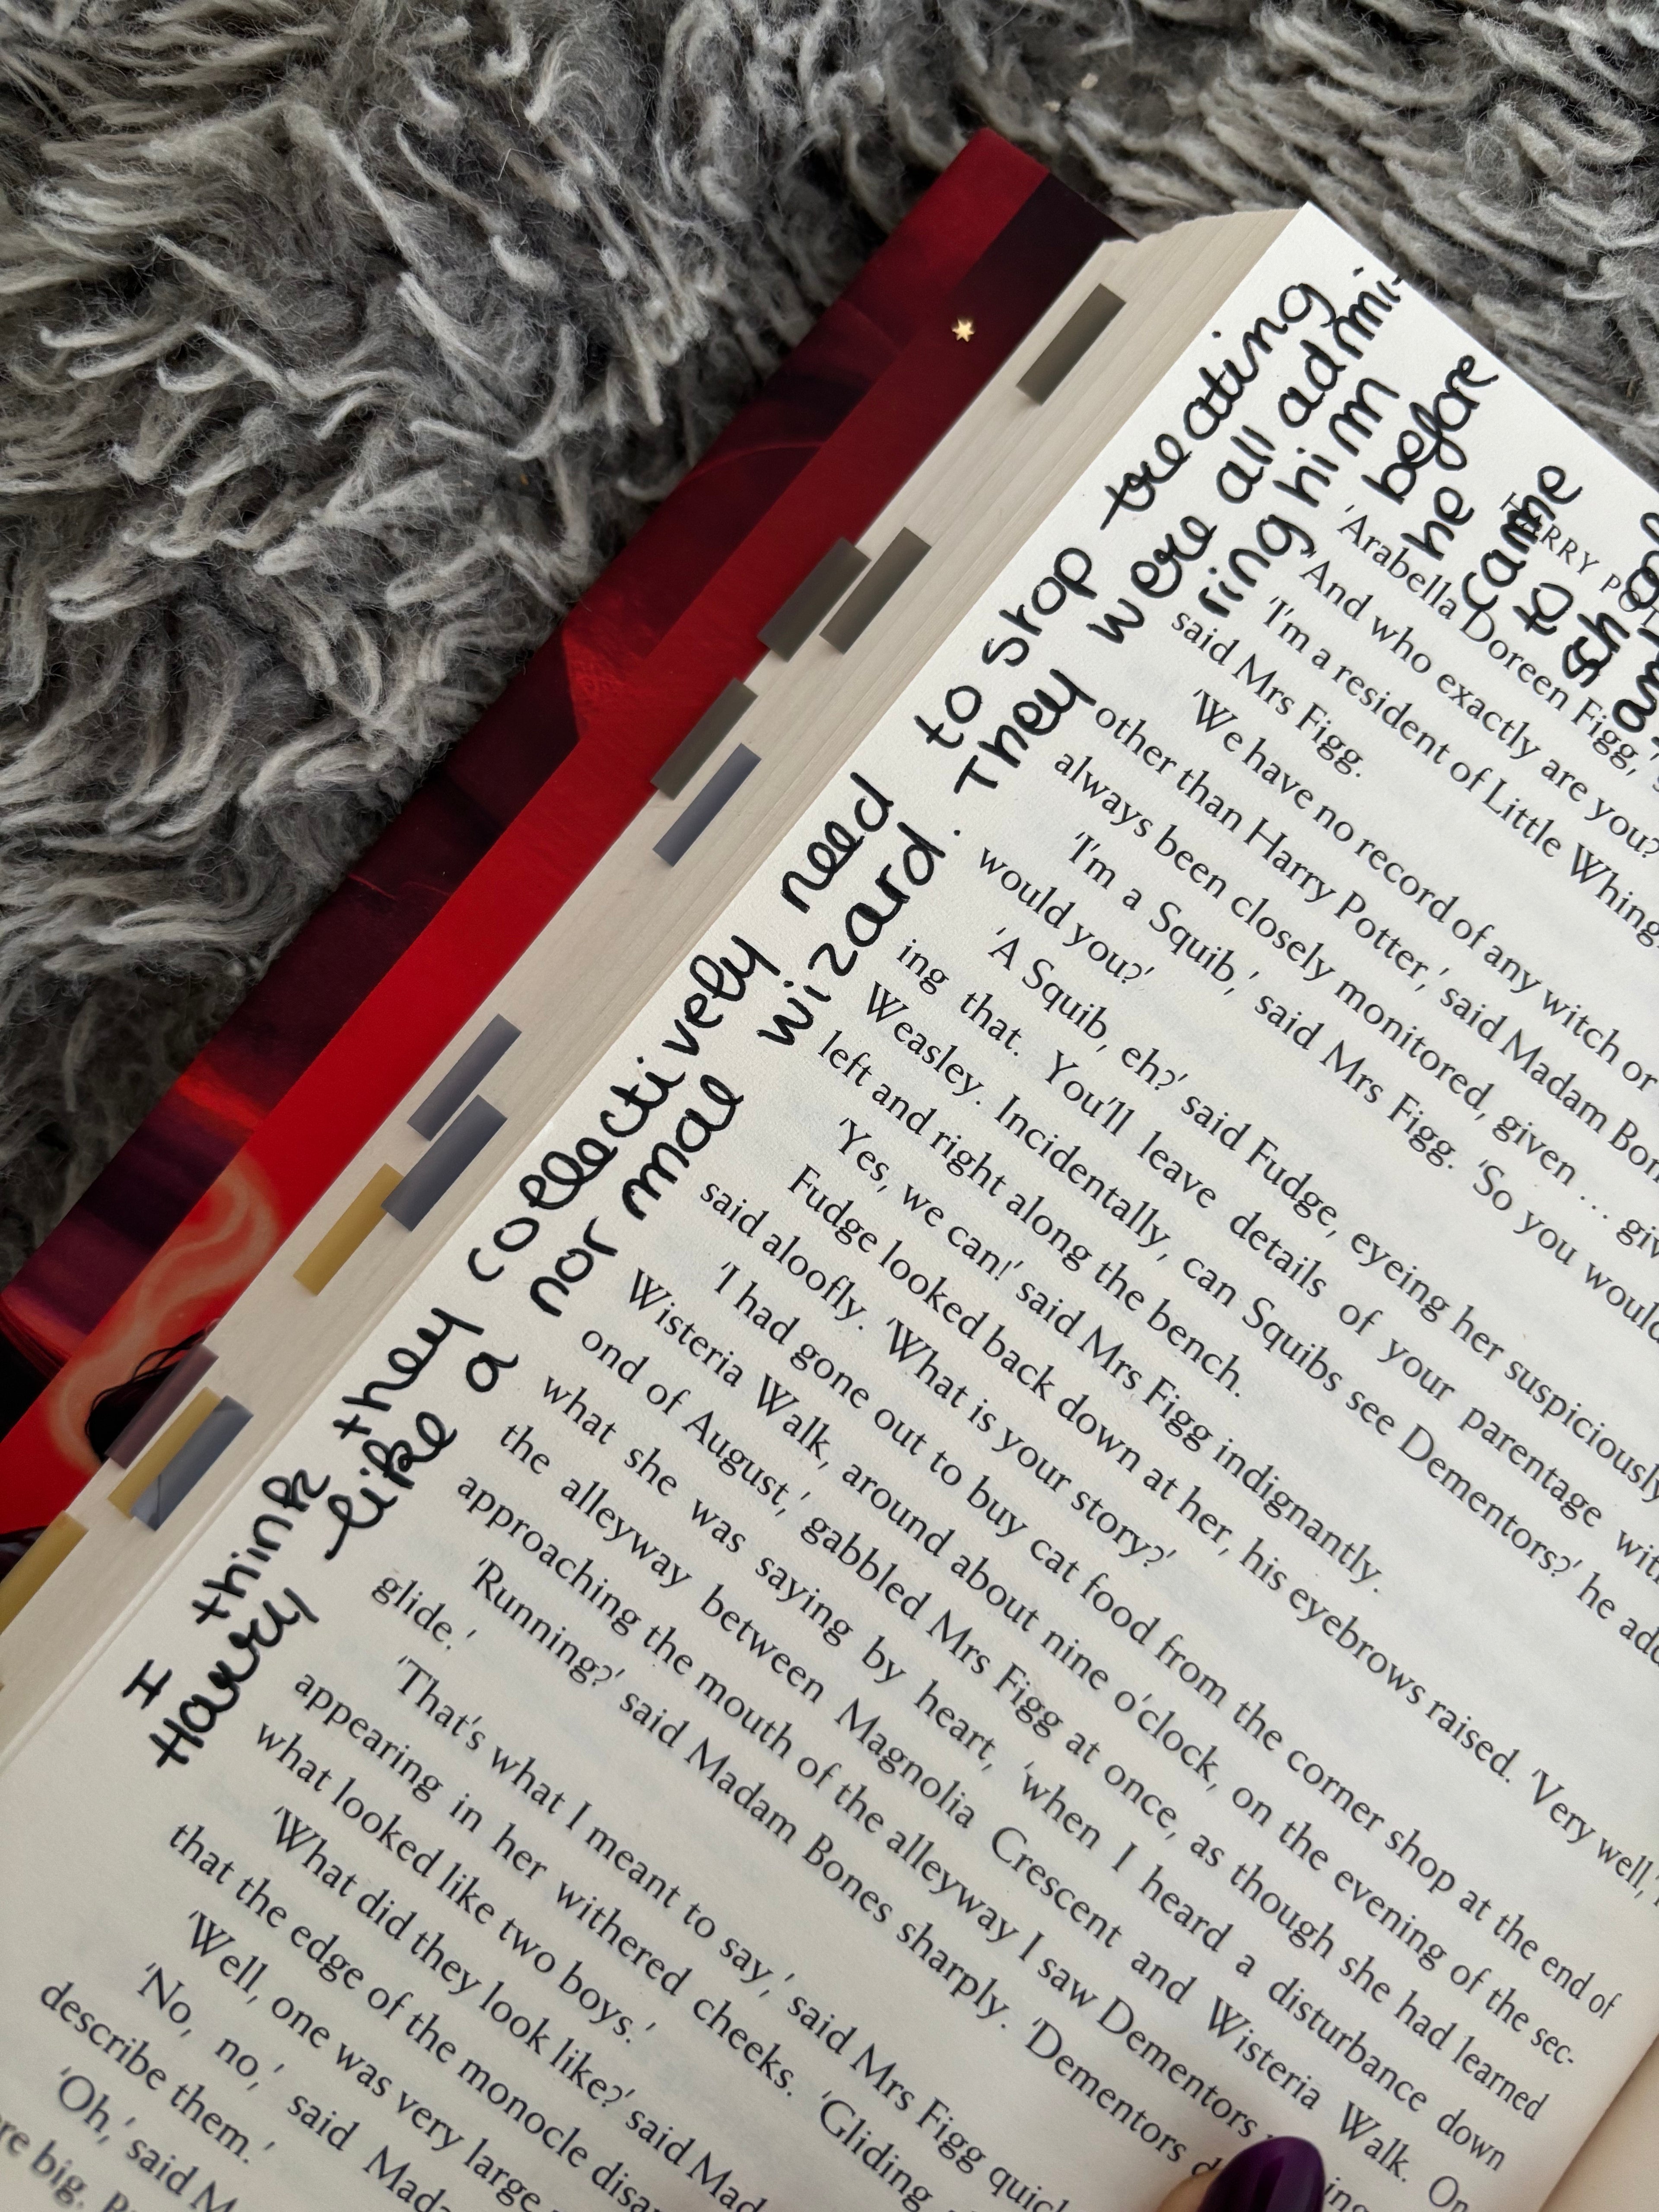 I think they collectively need to stop treating
Harry like a normal wizard. They were all admi-
ring him
before
he
came
to
HARRY
'Arabella Doreen Figg,'
'And who exactly are you?
'I'm a resident of Little Whing
said Mrs Figg.
'We have no record of any witch or
other than Harry Potter,' said Madam Bon
always been closely monitored, given ... giv
'I'm a Squib,' said Mrs Figg. 'So you would
would you?'
'A Squib, eh?' said Fudge, eyeing her suspiciously
ing that. You'll leave details of your parentage with
Weasley. Incidentally, can Squibs see Dementors?' he add
left and right along the bench.
'Yes, we can!' said Mrs Figg indignantly.
Fudge looked back down at her, his eyebrows raised. 'Very well,'
said aloofly. 'What is your story?'
'I had gone out to buy cat food from the corner shop at the end of
Wisteria Walk, around about nine o'clock, on the evening of the sec-
ond of August,' gabbled Mrs Figg at once, as though she had learned
what she was saying by heart, 'when I heard a disturbance down
the alleyway between Magnolia Crescent and Wisteria Walk. On
approaching the mouth of the alleyway I saw Dementors
'Running?' said Madam Bones sharply. 'Dementors
glide.'
'That's what I meant to say,' said Mrs Figg quick
appearing in her withered cheeks. 'Gliding
what looked like two boys.'
'What did they look like?' said Mad
that the edge of the monocle disa
'Well, one was very large
'No, no,' said Mada
describe them.'
'Oh,' said M
re big.